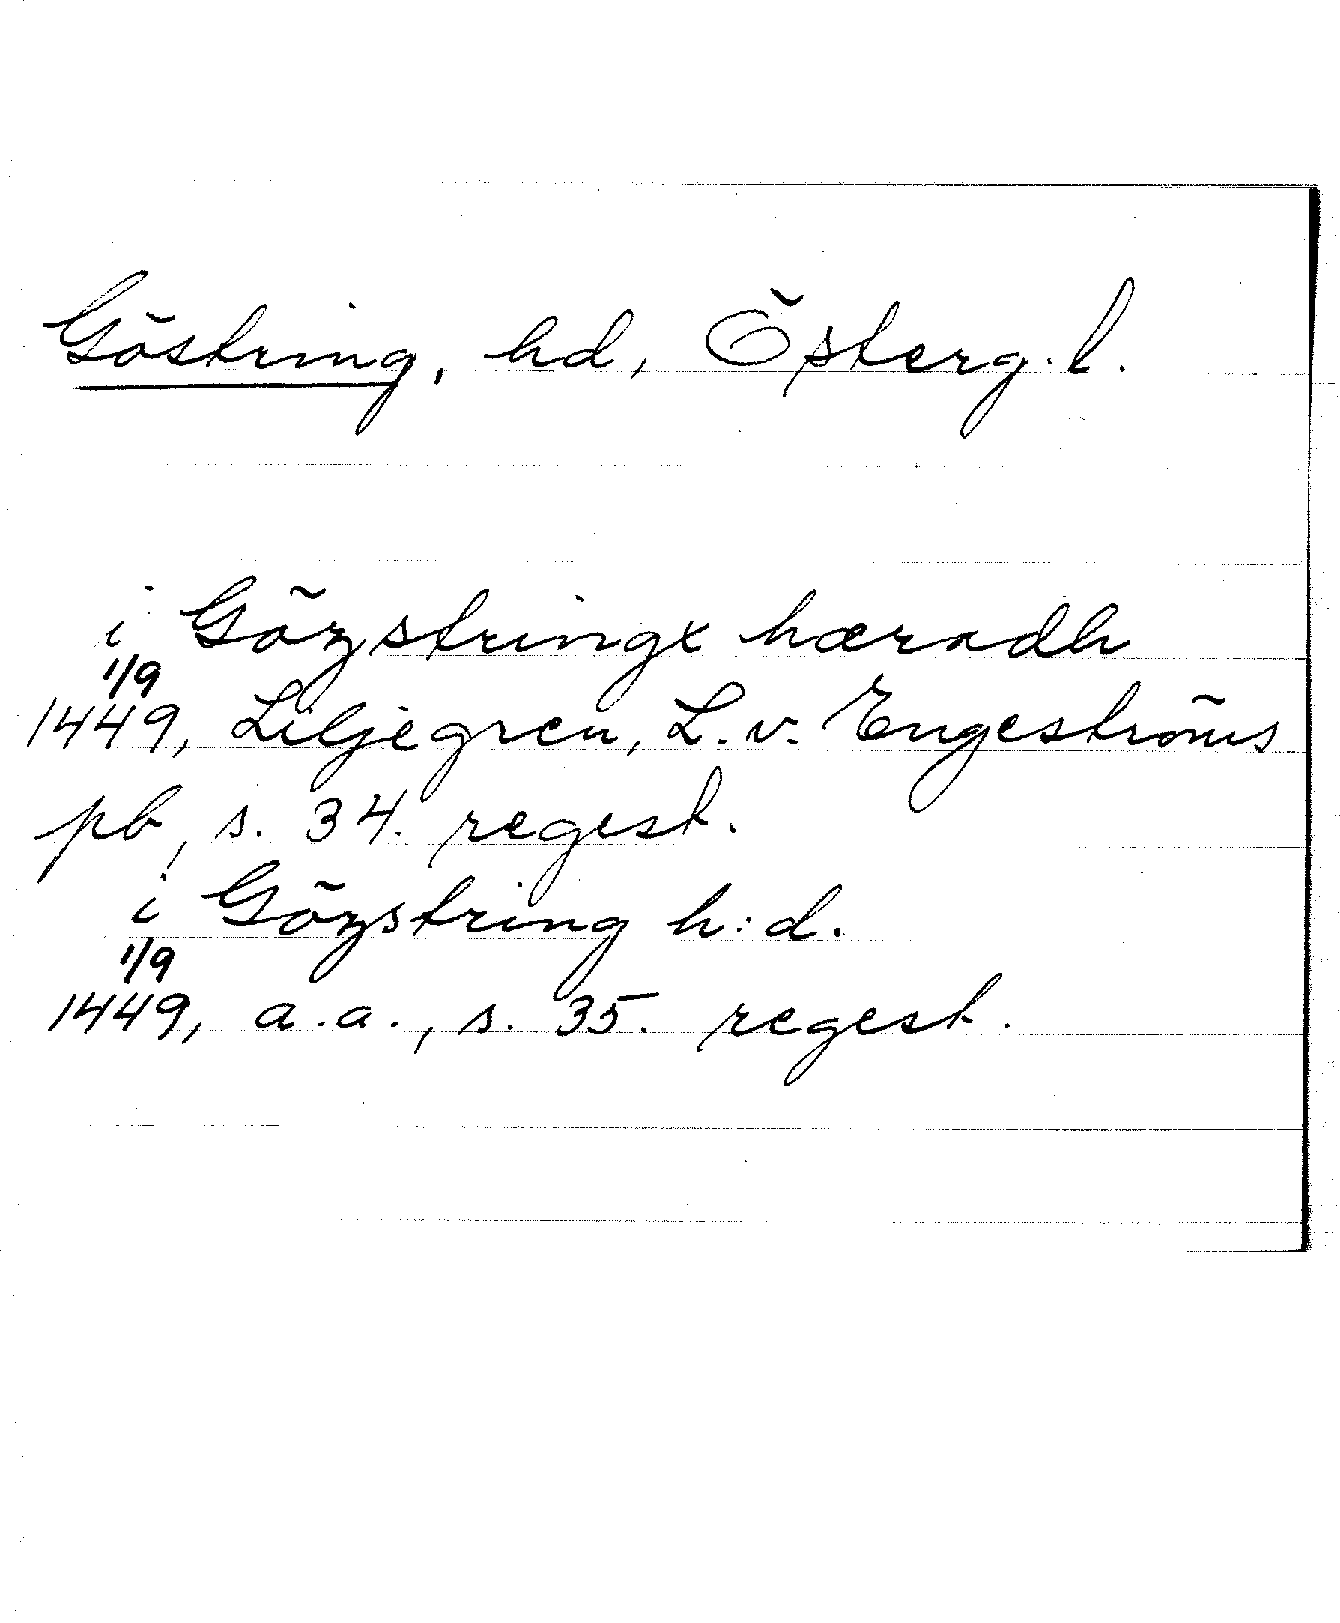 Göstring, hd, Österg. l.
i Gözstringx hæradh
1/9
1449, Liljegren, L. v. Engeströms
pb, s. 34. regest.
i Gözstring h:d.
1/9
1449, a.a., s. 35. regest.